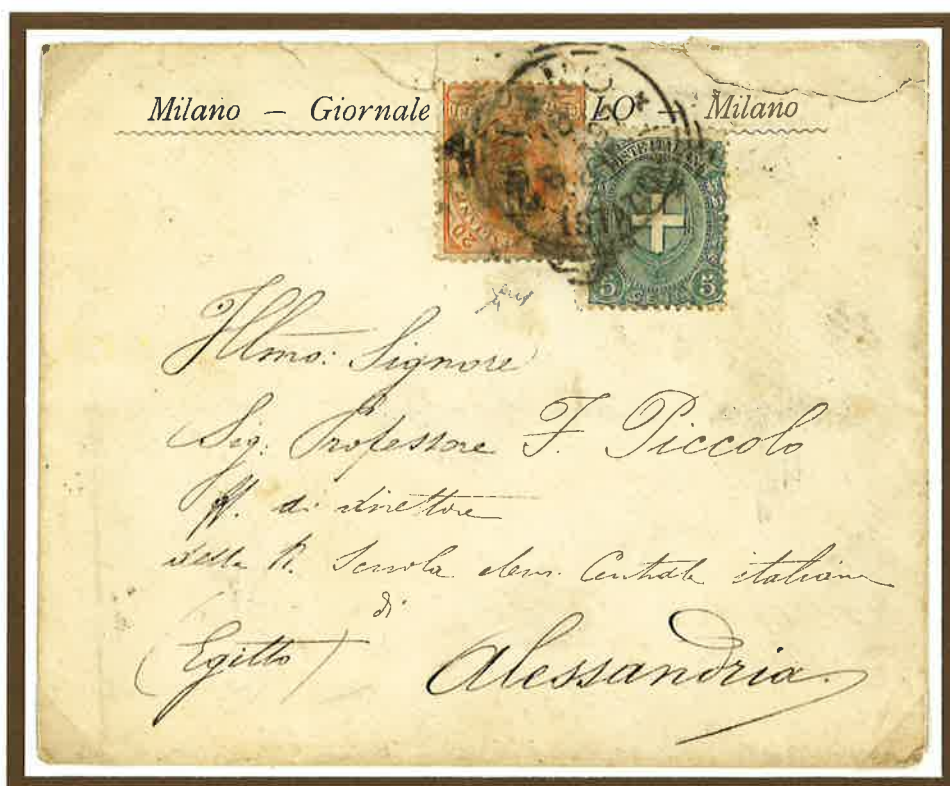 Milano – Giornale LO – Milano
20
POSTE ITALIANE
5 5
Illmo: Signore
Sig: Professore F. Piccolo
ff. di direttore
della R. Scuola elem. Centrale italiana
di
(Egitto) Alessandria.